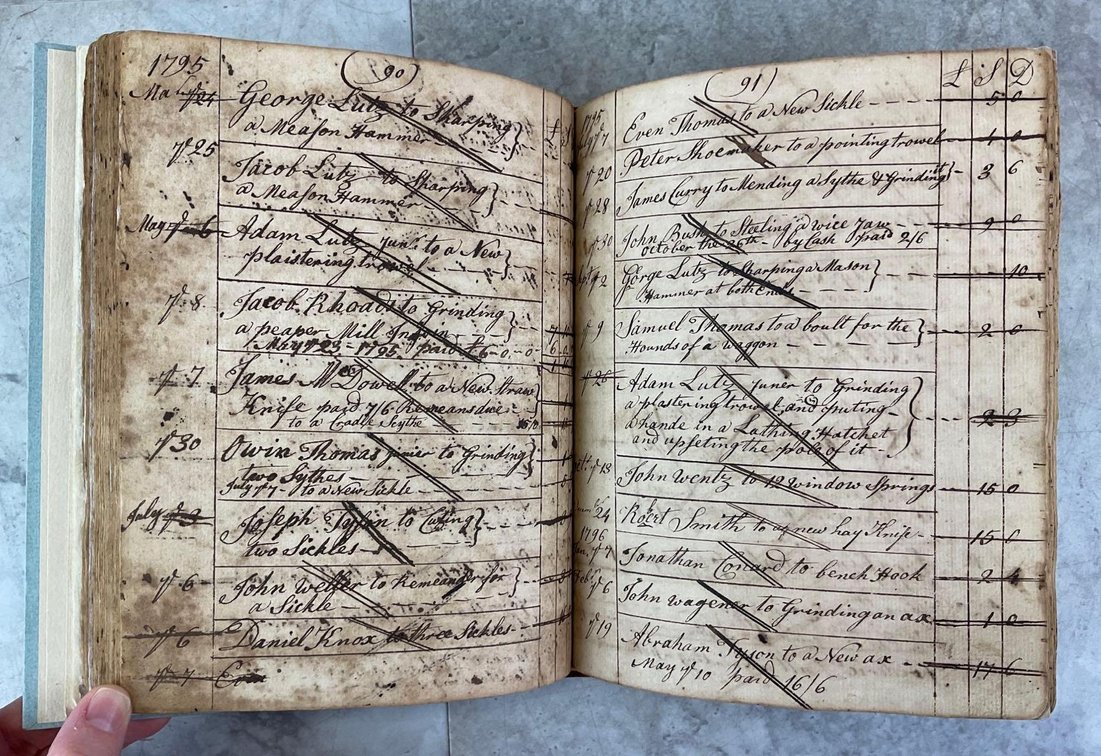 1795
(90)
George Lutz to Sharping
a Meason Hammer
yᵉ 25
Jacob Lutz to Sharping
a Meason Hammer
May yᵉ 6
Adam Lutz Junʳ to a New
plaistering trowel
yᵉ 8
Jacob Rhoads to Grinding
a peaper Mill
May yᵉ 23 1795 paid £6-0-0
yᵉ 7
James McDowel to a New Straw
Knife paid 7/6 Remeans due
to a Cradle Scythe
yᵉ 30
Owin Thomas junier to Grinding
two Sythes
July yᵉ 7 to a New Sickle
July yᵉ 3
Joseph Tyson to Cutting
two Sickles
yᵉ 6
John Welker to Remeander for
a Sickle
yᵉ 6
Daniel Knox to three Sickles
yᵉ 7
(91)
£ S D
1795
yᵉ 7
Even Thomas to a New Sickle 5 0
Peter Shoemaker to a pointing trowel 1 0
yᵉ 20
James Curry to Mending a Sythe & Grinding it 3 6
yᵉ 28
yᵉ 30
John Bush to Steeling a vice Jaw 9 0
october the 26th by Cash paid 2/6
yᵉ 2
Gorge Lutz to Sharping a Mason 10
Hammer at both Ends
yᵉ 9
Samuel Thomas to a boult for the 2 0
Hounds of a waggon
yᵉ 26
Adam Lutz Juner to Grinding
a plastering trowel and puting
a hande in a Lathing Hatchet 2 3
and upseting the pole of it
yᵉ 13
John Wentz to 12 window Springs 15 0
24
Robert Smith to a new hay Knife 15 0
1796
yᵉ 7
Jonathan Conard to bench Hook 2 4
yᵉ 6
John Wagener to Grinding an ax 1 0
yᵉ 19
Abraham Tyson to a New ax 17 6
May yᵉ 10 paid 16/6